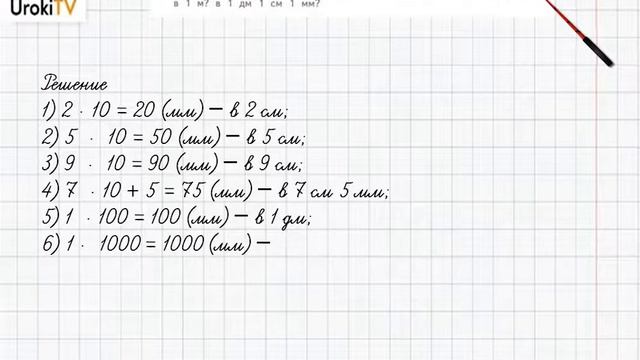 UrokiTV
в 1 м? в 1 дм 1 см 1 мм?
Решение
1) 2 · 10 = 20 (мм) – в 2 см;
2) 5 · 10 = 50 (мм) – в 5 см;
3) 9 · 10 = 90 (мм) – в 9 см;
4) 7 · 10 + 5 = 75 (мм) – в 7 см 5 мм;
5) 1 · 100 = 100 (мм) – в 1 дм;
6) 1 · 1000 = 1000 (мм) –